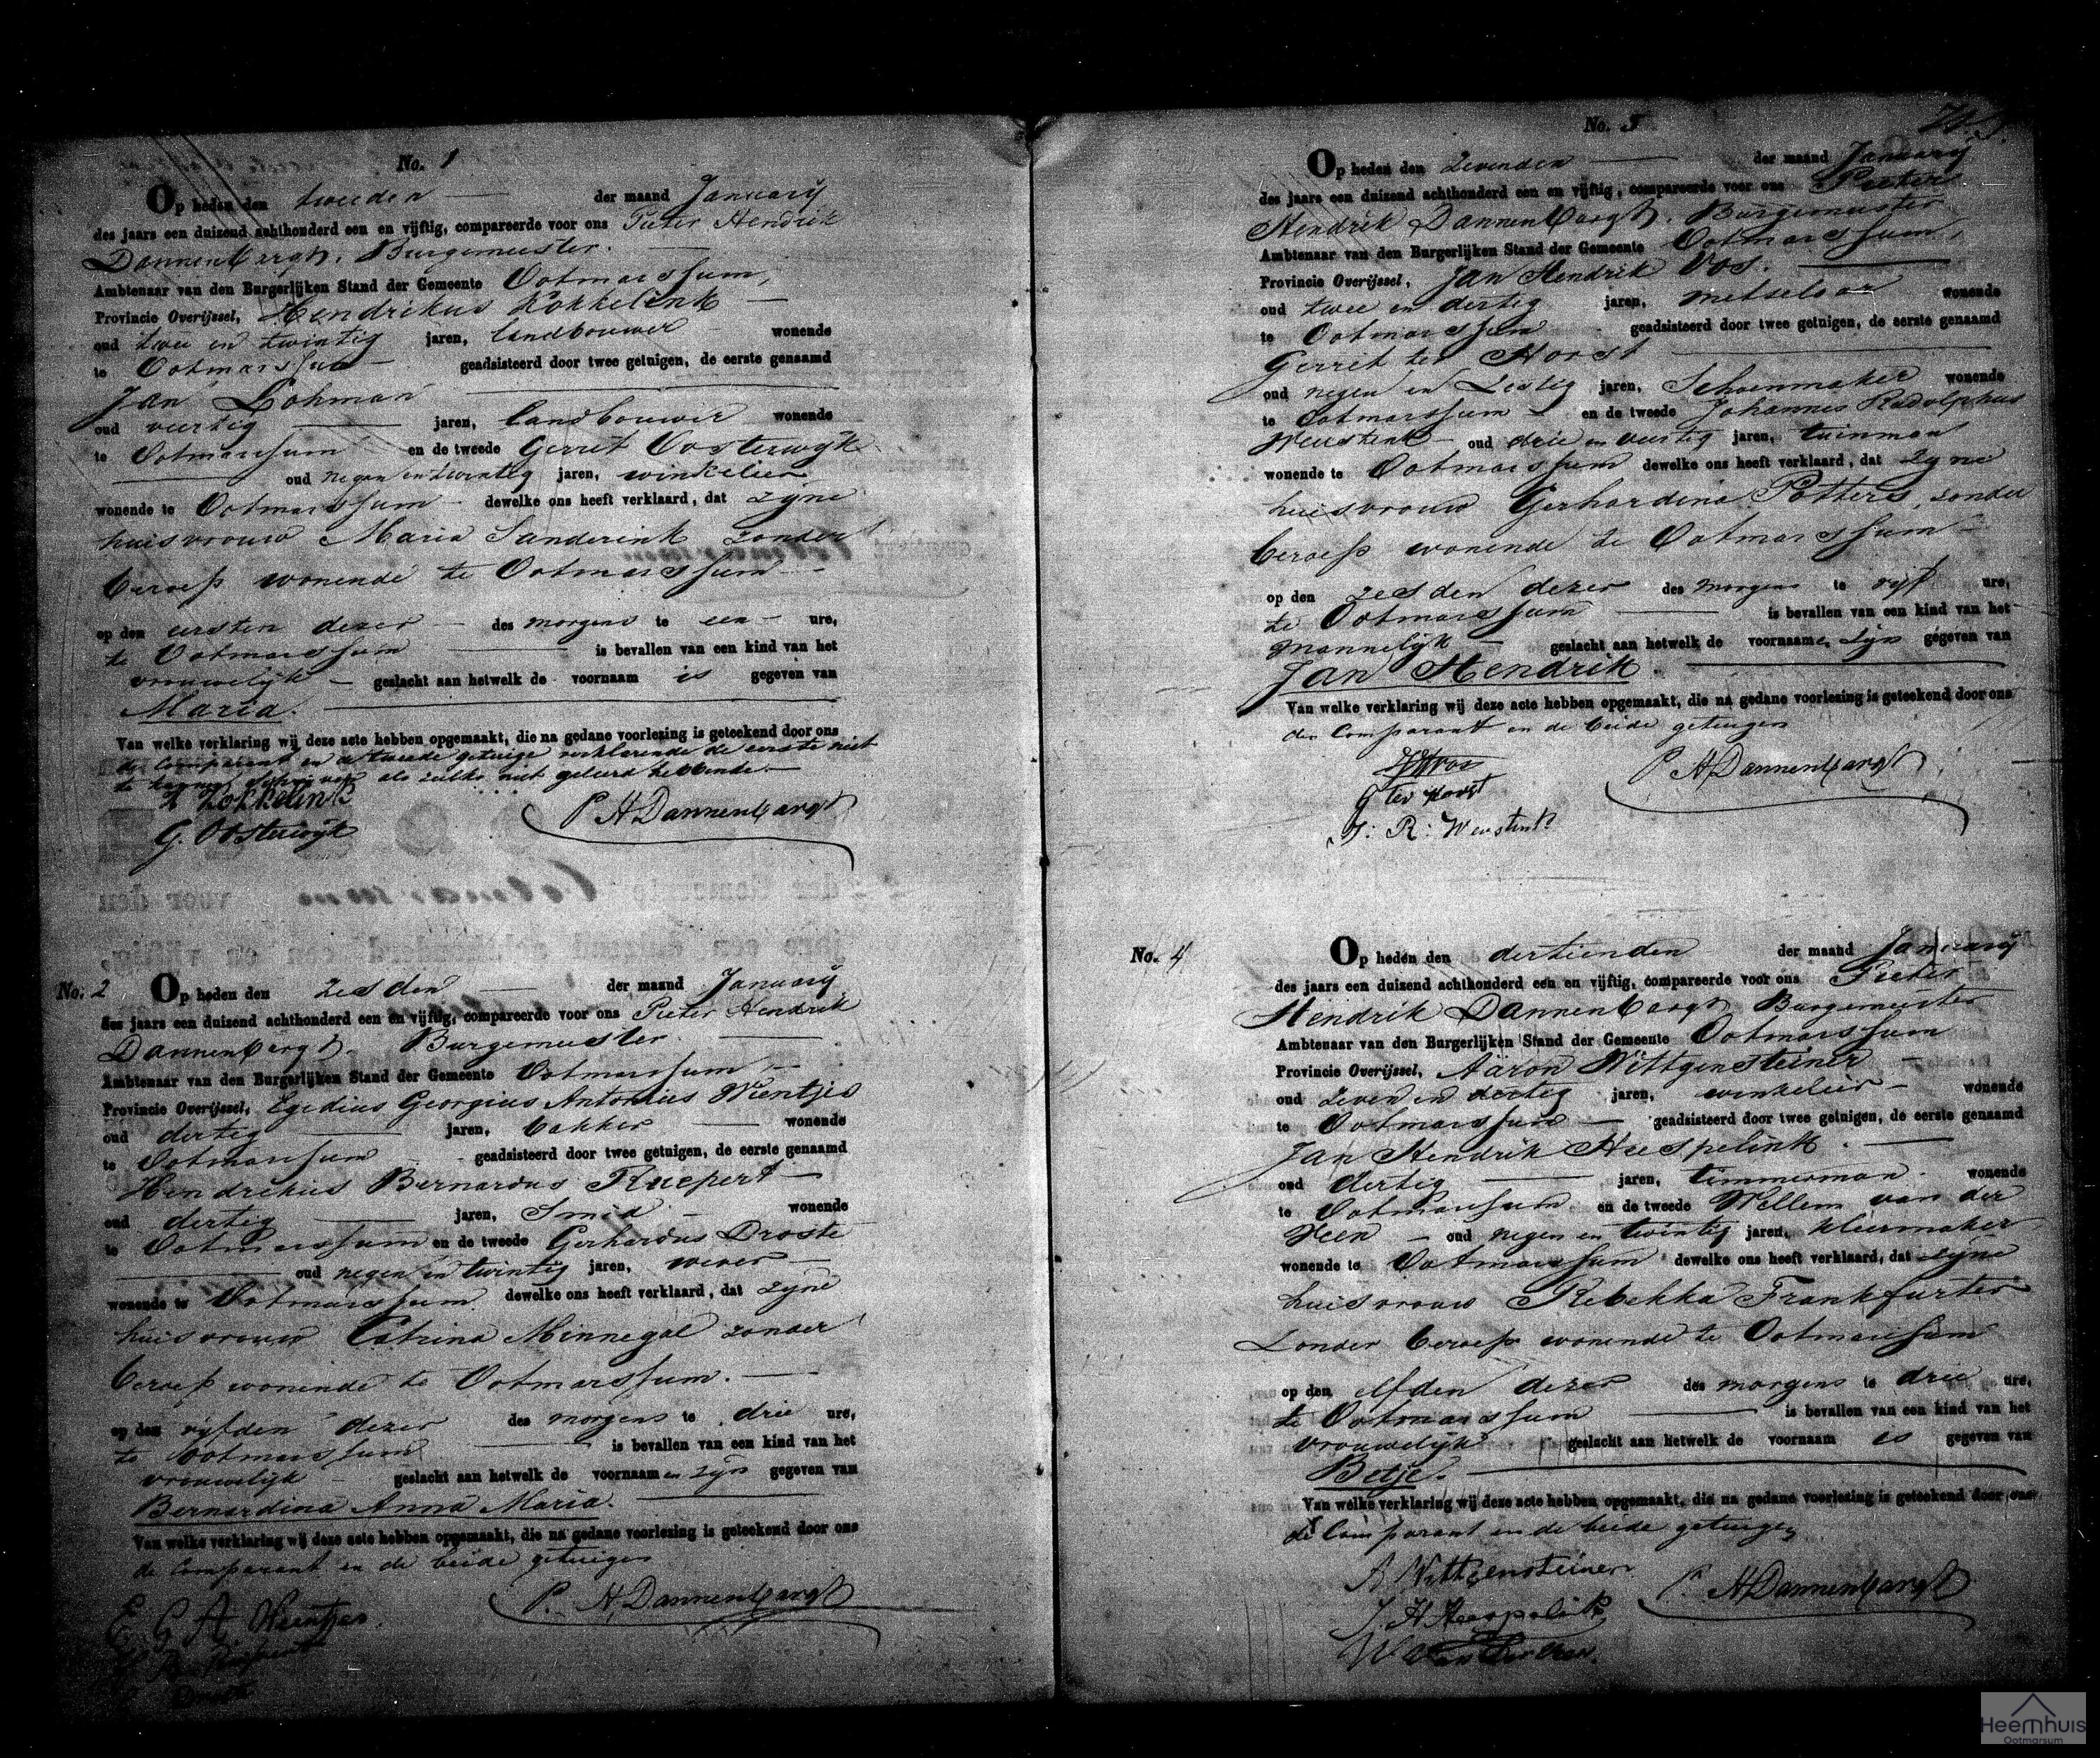 No. 1
Op heden den tweeden der maand Januarij
des jaars een duizend achthonderd een en vijftig, compareerde voor ons Pieter Hendrik
Dannenbargh, Burgemeester.
Ambtenaar van den Burgerlijken Stand der Gemeente Ootmarssum,
Provincie Overijssel, Hendrikus Kokkelink
oud twee en twintig jaren, landbouwer wonende
te Ootmarssum geadsisteerd door twee getuigen, de eerste genaamd
Jan Lohman
oud veertig jaren, landbouwer wonende
te Ootmarssum en de tweede Gerrit Oosterwijk
oud negen en twintig jaren, winkelier
wonende te Ootmarssum dewelke ons heeft verklaard, dat zijne
huisvrouw Maria Sanderink zonder
beroep wonende te Ootmarssum
op den eersten dezer des morgens te een ure,
te Ootmarssum is bevallen van een kind van het
vrouwelijk geslacht aan hetwelk de voornaam is gegeven van
Maria.
Van welke verklaring wij deze acte hebben opgemaakt, die na gedane voorlezing is geteekend door ons
de Comparant en de tweede getuige verklarende de eerste niet
te kunnen schrijven als zulks niet geleerd hebbende.
H Kokkelink
G. Oosterwijk
P H Dannenbargh
No. 2
Op heden den zesden der maand Januarij
des jaars een duizend achthonderd een en vijftig, compareerde voor ons Pieter Hendrik
Dannenbargh, Burgemeester.
Ambtenaar van den Burgerlijken Stand der Gemeente Ootmarssum,
Provincie Overijssel, Egedius Georgius Antonius Wientjes
oud dertig jaren, bakker wonende
te Ootmarssum geadsisteerd door twee getuigen, de eerste genaamd
Hendrikus Bernardus Ruepert
oud dertig jaren, Smid wonende
te Ootmarssum en de tweede Gerhardus Droste
oud negen en twintig jaren, wever
wonende te Ootmarssum dewelke ons heeft verklaard, dat zijne
huisvrouw Catrina Minnegal zonder
beroep wonende te Ootmarssum.
op den vijfden dezer des morgens te drie ure,
te Ootmarssum is bevallen van een kind van het
vrouwelijk geslacht aan hetwelk de voornaamen zijn gegeven van
Bernardina Anna Maria.
Van welke verklaring wij deze acte hebben opgemaakt, die na gedane voorlezing is geteekend door ons
de Comparant en de beide getuigen
E G A Wientjes.
P. H Dannenbargh
Droste
No. 3
Op heden den zevenden der maand Januarij
des jaars een duizend achthonderd een en vijftig, compareerde voor ons Pieter
Hendrik Dannenbargh, Burgemeester
Ambtenaar van den Burgerlijken Stand der Gemeente Ootmarssum,
Provincie Overijssel, Jan Hendrik Vos.
oud twee en dertig jaren, metselaar wonende
te Ootmarssum geadsisteerd door twee getuigen, de eerste genaamd
Gerrit ter Horst
oud negen en zestig jaren, Schoenmaker wonende
te Ootmarssum en de tweede Johannes Radolphus
Weustink oud drie en veertig jaren, tuinman
wonende te Ootmarssum dewelke ons heeft verklaard, dat zijne
huisvrouw Gerhardina Potters, zonder
beroep wonende te Ootmarssum
op den zesden dezer des morgens te vijf ure,
te Ootmarssum is bevallen van een kind van het
mannelijk geslacht aan hetwelk de voornaamen zijn gegeven van
Jan Hendrik.
Van welke verklaring wij deze acte hebben opgemaakt, die na gedane voorlezing is geteekend door ons
den Comparant en de beide getuigen
JHVos
G ter Horst
J: R: Weustink
P H Dannenbargh
No. 4
Op heden den dertienden der maand Januarij
des jaars een duizend achthonderd een en vijftig, compareerde voor ons Pieter
Hendrik Dannenbargh, Burgemeester
Ambtenaar van den Burgerlijken Stand der Gemeente Ootmarssum
Provincie Overijssel, Aäron Wittgensteiner
oud zeven en dertig jaren, winkelier wonende
te Ootmarssum geadsisteerd door twee getuigen, de eerste genaamd
Jan Hendrik Heespelink.
oud dertig jaren, timmerman. wonende
te Ootmarssum en de tweede Willem van der
Veen oud negen en twintig jaren, kleermaker
wonende te Ootmarssum dewelke ons heeft verklaard, dat zijne
huisvrouw Rebekka Frankfurter
zonder beroep wonende te Ootmarssum
op den elfden dezer des morgens te drie ure,
te Ootmarssum is bevallen van een kind van het
vrouwelijk geslacht aan hetwelk de voornaam is gegeven van
Betje.
Van welke verklaring wij deze acte hebben opgemaakt, die na gedane voorlezing is geteekend door ons
de Comparant en de beide getuigen
A Wittgensteiner
J. H Heespelink
W van der Veen.
P. H Dannenbargh
Heemhuis
Ootmarsum